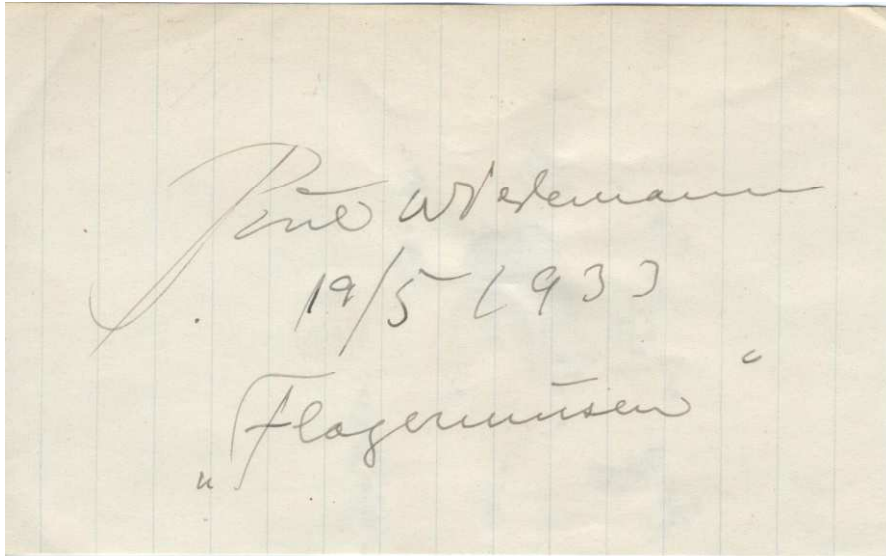 Poul Wiedemann
19/5 1933
„Flagermusen“